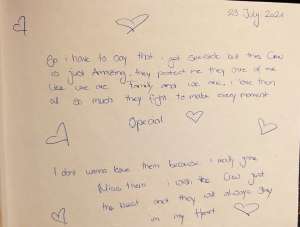 23 July 2021
So i have to say that i got seaside but this Crew
is just Amazing, they protect me they care of me
Like we are family and we are. i love them
all so much they fight to make every moment
Special
I dont wanna leave them because i really gone
Miss them i wish the Crew just
the best and they will always stay
in my Heart